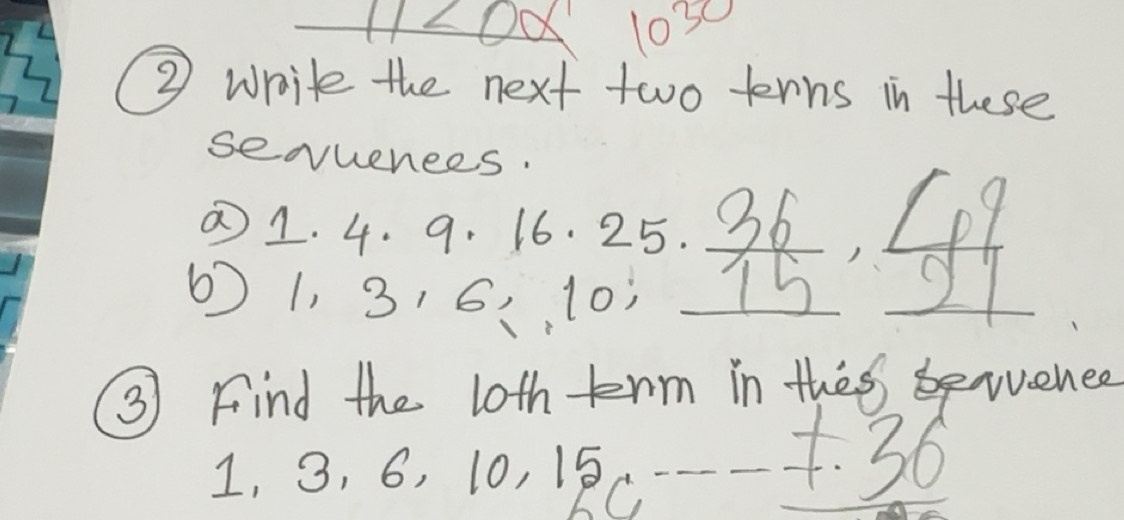 10³⁰
② Write the next two terms in these
sequences.
a) 1. 4. 9. 16. 25. 36, 49
b) 1, 3, 6, 10, 15 21
③ Find the 10th term in this sequence
1, 3, 6, 10, 15, ---- 36